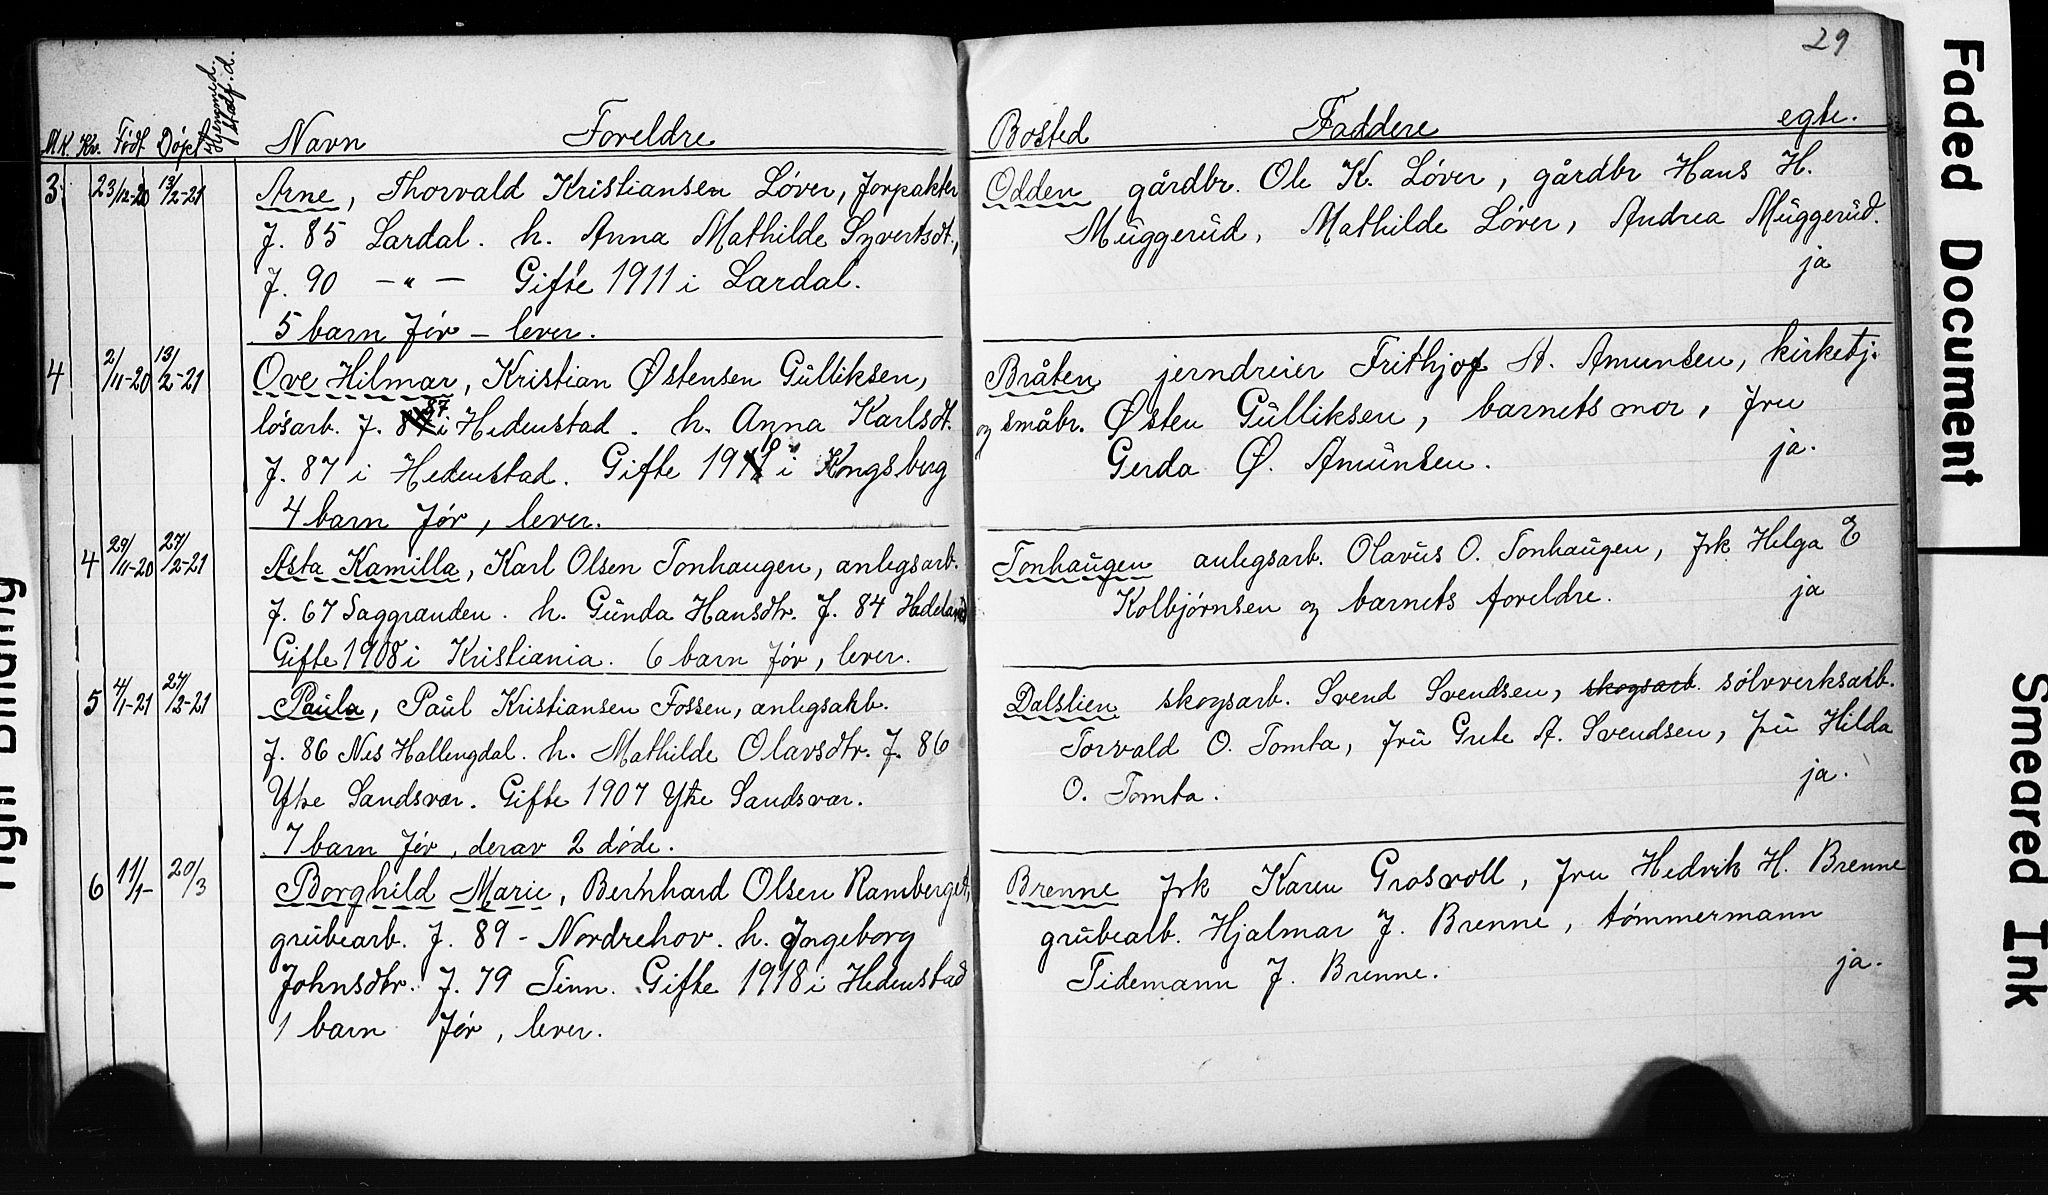 29
Mk. Kv. Født Døpt Hjemmed. stadf. d. Navn Foreldre
Bosted Faddere egte.
3. 23/12-20 13/2-21 Arne, Thorvald Kristiansen Løver, forpakter
f. 85 Lardal. h. Anna Mathilde Syvertsdt.,
f. 90 -"- Gifte 1911 i Lardal.
5 barn før – lever.
Odden gårdbr. Ole K. Løver, gårdbr Hans H.
Muggerud, Mathilde Løver, Andrea Muggerud.
ja
4 2/11-20 13/2-21 Ove Hilmar, Kristian Østensen Gulliksen,
løsarb. f. 87 i Hedenstad. h. Anna Karlsdt.
f. 87 i Hedenstad. Gifte 1910 i Kongsberg
4 barn før, lever.
Bråten jerndreier Frithjof A. Amunsen, kirketj.
og småbr. Østen Gulliksen, barnets mor, fru
Gerda Ø. Amunsen. ja.
4 29/11-20 27/2-21 Asta Kamilla, Karl Olsen Tonhaugen, anlegsarb.
f. 67 Saggranden. h. Gunda Hansdtr. f. 84 Hadeland
Gifte 1908 i Kristiania. 6 barn før, lever.
Tonhaugen anlegsarb. Olavus O. Tonhaugen, frk Helga E
Kolbjørnsen og barnets foreldre. ja
5 4/1-21 27/2-21 Paula, Paul Kristiansen Fossen, anlegsarb.
f. 86 Nes Hallengdal. h. Mathilde Olavsdtr. f. 86
Ytre Sandsvær. Gifte 1907 Ytre Sandsvær.
7 barn før, derav 2 døde.
Dalslien skogsarb. Svend Svendsen, skogsarb. sølvverksarb.
Torvald O. Tomta, fru Grete A. Svendsen, fru Hilda
O. Tomta. ja.
6 11/1- 20/3 Borghild Marie, Bernhard Olsen Ramberget,
grubearb. f. 89 - Nordrehov. h. Ingeborg
Johnsdtr. f. 79 Tinn. Gifte 1918 i Hedenstad
1 barn før, lever.
Brenne frk Karen Grosvoll, fru Hedvik H. Brenne
grubearb. Hjalmar J. Brenne, tømmermann
Tidemann J. Brenne. ja.
Faded Document
Smeared Ink
Tight Binding